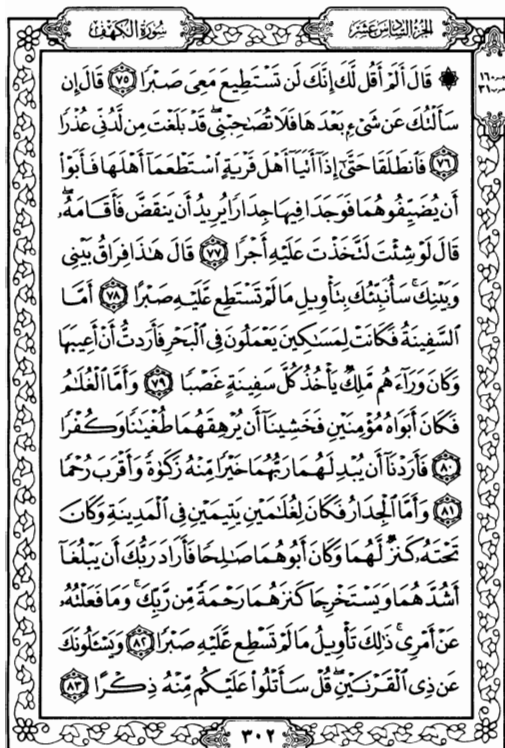 سُورَةُ الكَهْفِ
الجُزْءُ السَّادِسَ عَشَرَ
۞ قَالَ أَلَمْ أَقُل لَّكَ إِنَّكَ لَن تَسْتَطِيعَ مَعِيَ صَبْرًا ٧٥ قَالَ إِن
سَأَلْتُكَ عَن شَىْءٍۭ بَعْدَهَا فَلَا تُصَٰحِبْنِى ۖ قَدْ بَلَغْتَ مِن لَّدُنِّى عُذْرًا
٧٦ فَٱنطَلَقَا حَتَّىٰٓ إِذَآ أَتَيَآ أَهْلَ قَرْيَةٍ ٱسْتَطْعَمَآ أَهْلَهَا فَأَبَوْا۟
أَن يُضَيِّفُوهُمَا فَوَجَدَا فِيهَا جِدَارًا يُرِيدُ أَن يَنقَضَّ فَأَقَامَهُۥ ۖ
قَالَ لَوْ شِئْتَ لَتَّخَذْتَ عَلَيْهِ أَجْرًا ٧٧ قَالَ هَٰذَا فِرَاقُ بَيْنِى
وَبَيْنِكَ ۚ سَأُنَبِّئُكَ بِتَأْوِيلِ مَا لَمْ تَسْتَطِع عَّلَيْهِ صَبْرًا ٧٨ أَمَّا
ٱلسَّفِينَةُ فَكَانَتْ لِمَسَٰكِينَ يَعْمَلُونَ فِى ٱلْبَحْرِ فَأَرَدتُّ أَنْ أَعِيبَهَا
وَكَانَ وَرَآءَهُم مَّلِكٌ يَأْخُذُ كُلَّ سَفِينَةٍ غَصْبًا ٧٩ وَأَمَّا ٱلْغُلَٰمُ
فَكَانَ أَبَوَاهُ مُؤْمِنَيْنِ فَخَشِينَآ أَن يُرْهِقَهُمَا طُغْيَٰنًا وَكُفْرًا
٨٠ فَأَرَدْنَآ أَن يُبْدِلَهُمَا رَبُّهُمَا خَيْرًا مِّنْهُ زَكَوٰةً وَأَقْرَبَ رُحْمًا
٨١ وَأَمَّا ٱلْجِدَارُ فَكَانَ لِغُلَٰمَيْنِ يَتِيمَيْنِ فِى ٱلْمَدِينَةِ وَكَانَ
تَحْتَهُۥ كَنزٌ لَّهُمَا وَكَانَ أَبُوهُمَا صَٰلِحًا فَأَرَادَ رَبُّكَ أَن يَبْلُغَآ
أَشُدَّهُمَا وَيَسْتَخْرِجَا كَنزَهُمَا رَحْمَةً مِّن رَّبِّكَ ۚ وَمَا فَعَلْتُهُۥ
عَنْ أَمْرِى ۚ ذَٰلِكَ تَأْوِيلُ مَا لَمْ تَسْطِع عَّلَيْهِ صَبْرًا ٨٢ وَيَسْـَٔلُونَكَ
عَن ذِى ٱلْقَرْنَيْنِ ۖ قُلْ سَأَتْلُوا۟ عَلَيْكُم مِّنْهُ ذِكْرًا ٨٣
٣٠٢